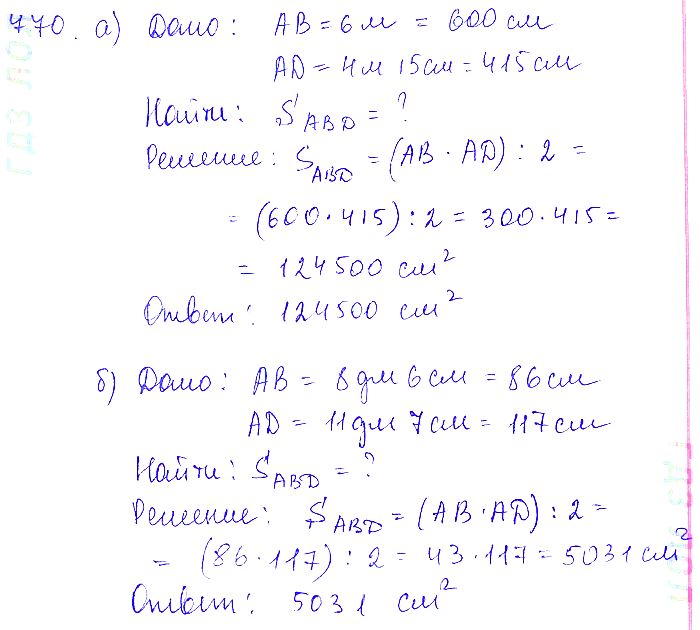 770. а) Дано: AB = 6 м = 600 см
AD = 4м 15см = 415 см
Найти: S ABD = ?
Решение: S ABD = (AB · AD) : 2 =
= (600 · 415) : 2 = 300 · 415 =
= 124500 см²
Ответ: 124500 см²
б) Дано: AB = 8 дм 6 см = 86 см
AD = 11дм 7см = 117 см
Найти: S ABD = ?
Решение: S ABD = (AB · AD) : 2 =
= (86 · 117) : 2 = 43 · 117 = 5031 см²
Ответ: 5031 см²